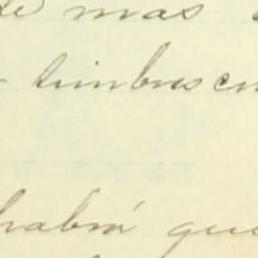 de mas
timbres en
habrá que